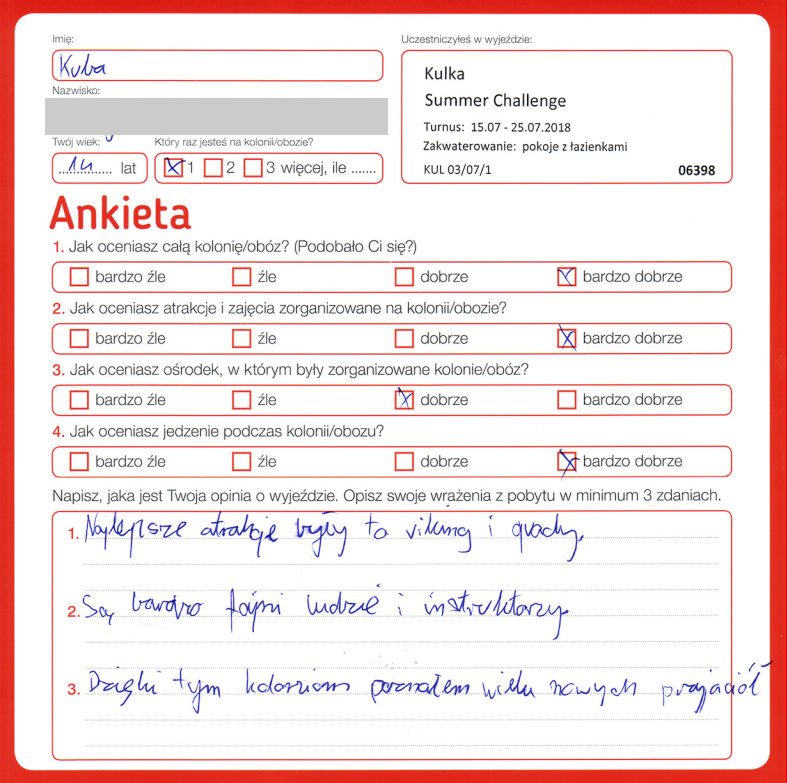 Imię:
Kuba
Nazwisko:
Twój wiek:
14 lat
Który raz jesteś na kolonii/obozie?
1 2 3 więcej, ile .......
Uczestniczyłeś w wyjeździe:
Kulka
Summer Challenge
Turnus: 15.07 - 25.07.2018
Zakwaterowanie: pokoje z łazienkami
KUL 03/07/1 06398
Ankieta
1. Jak oceniasz całą kolonię/obóz? (Podobało Ci się?)
bardzo źle źle dobrze bardzo dobrze
2. Jak oceniasz atrakcje i zajęcia zorganizowane na kolonii/obozie?
bardzo źle źle dobrze bardzo dobrze
3. Jak oceniasz ośrodek, w którym były zorganizowane kolonie/obóz?
bardzo źle źle dobrze bardzo dobrze
4. Jak oceniasz jedzenie podczas kolonii/obozu?
bardzo źle źle dobrze bardzo dobrze
Napisz, jaka jest Twoja opinia o wyjeździe. Opisz swoje wrażenia z pobytu w minimum 3 zdaniach.
1. Najlepsze atrakcje były to viking i quady.
2. Są bardzo fajni ludzie i instruktorzy
3. Dzięki tym koloniom poznałem wielu nowych przyjaciół